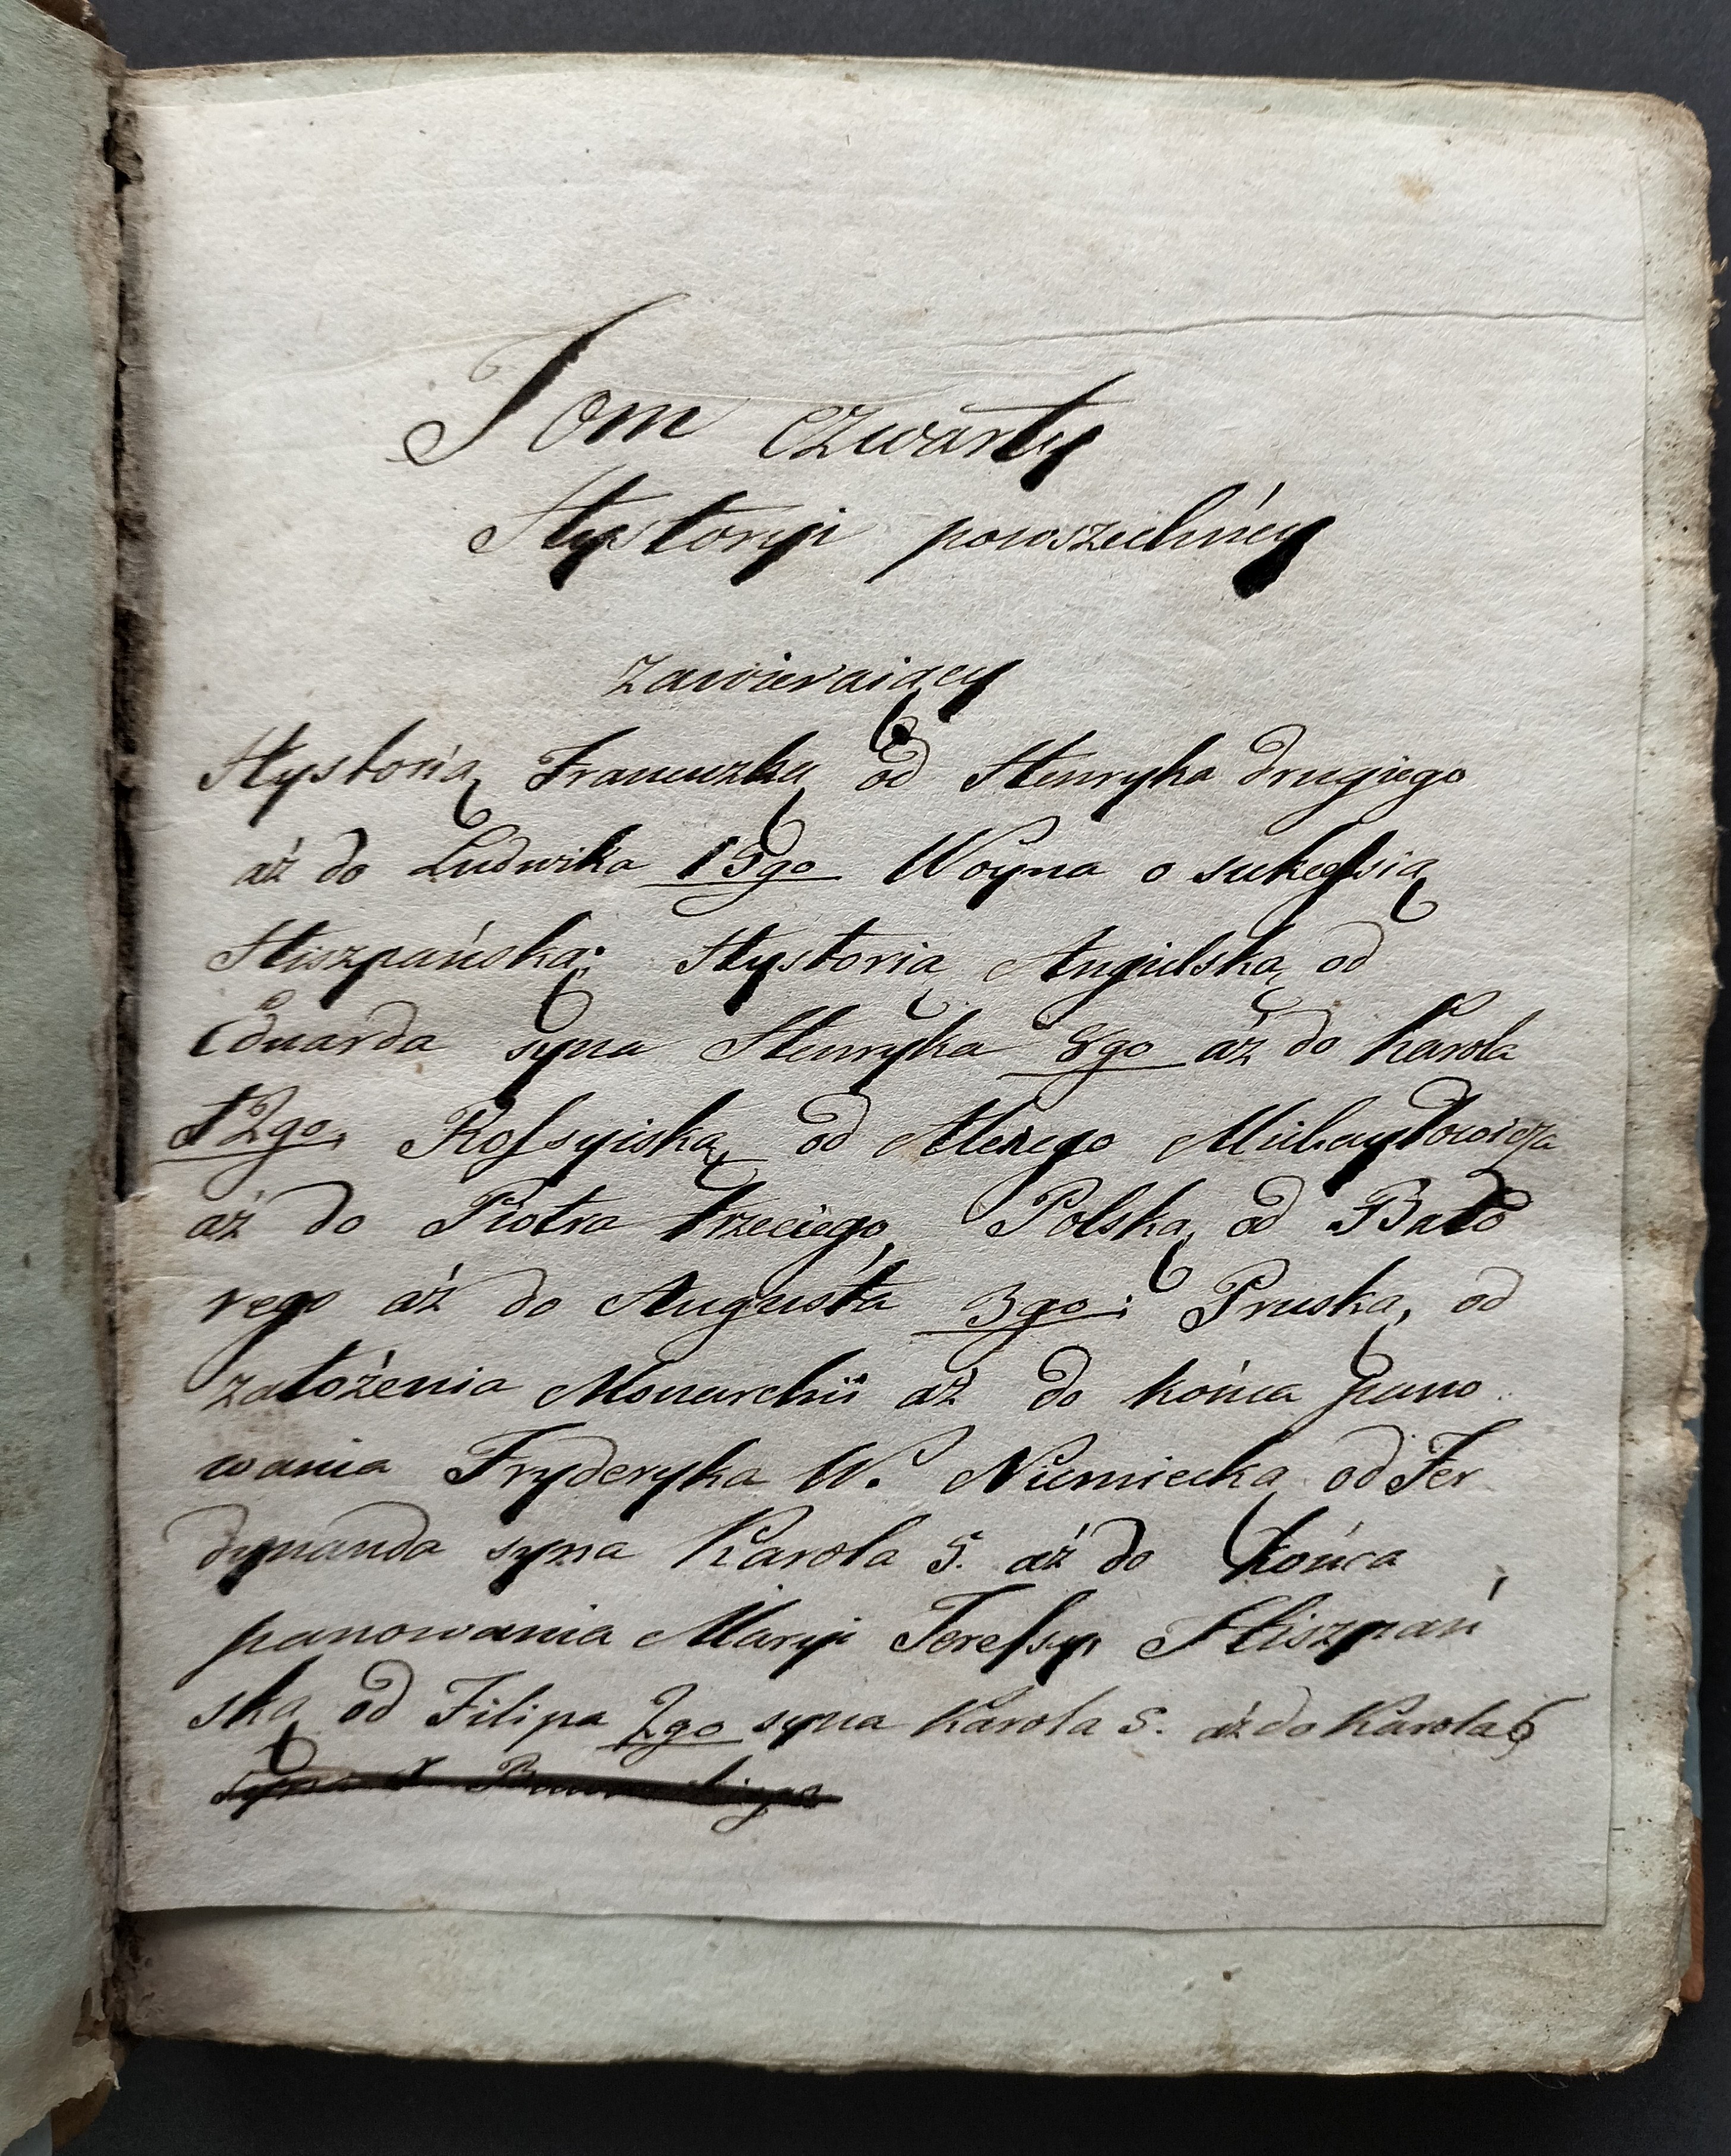 Tom czwarty
Hystoryi powszechney
zawieraiący
Hystorią Francuzką od Henryka drugiego
aż do Ludwika 15go Woyna o sukcessią
Hiszpańską; Hystorią Angielską od
Eduarda syna Henryka 8go aż do Karola
12go, Rossyiską od Alexego Michayłowicza
aż do Piotra trzeciego, Polską od Bato
rego aż do Augusta 3go; Pruską, od
założenia Monarchii aż do końca pano
wania Fryderyka W. Niemiecką od Fer
dynanda syna Karola 5. aż do końca
panowania Maryi Teressy, Hiszpań
ską od Filipa 2go syna Karola 5. aż do Karola 6